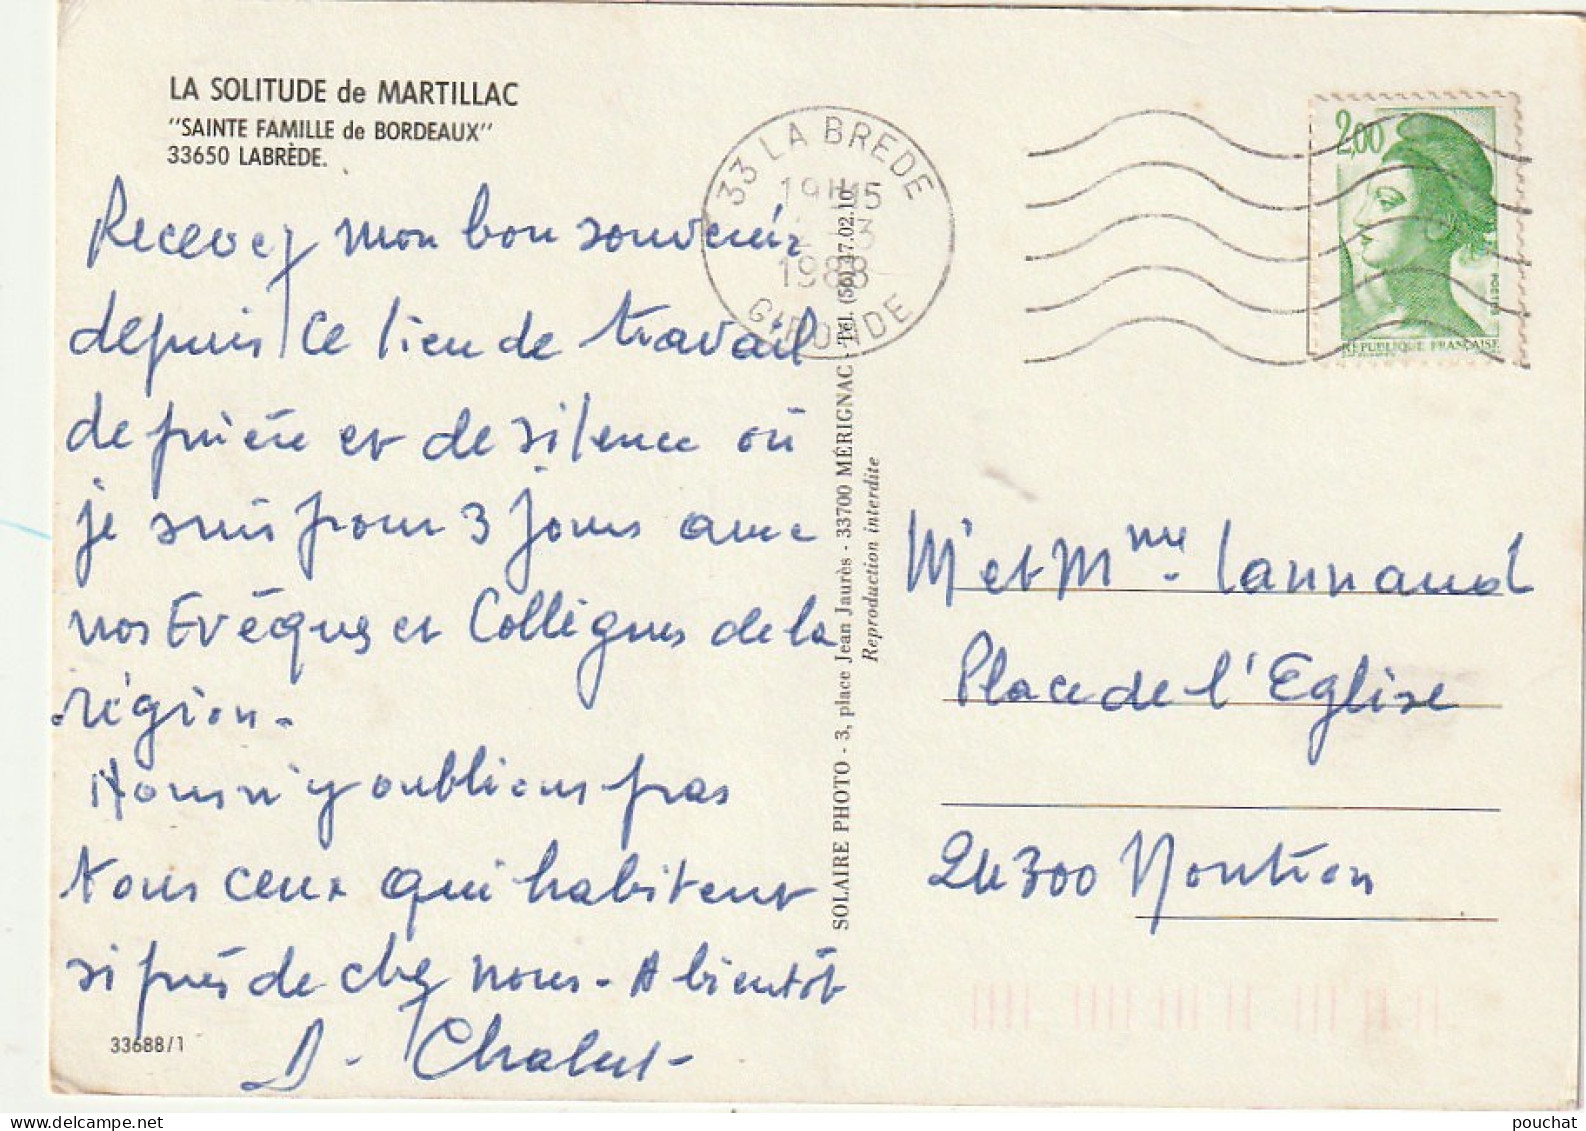 LA SOLITUDE de MARTILLAC
"SAINTE FAMILLE de BORDEAUX"
33650 LABRÈDE.
Recevez mon bon souvenir
depuis ce lieu de travail
de prière et de silence où
je suis pour 3 jours avec
nos Evêques et Collègues de la
région.
Nous n'y oublions pas
tous ceux qui habitent
si près de chez nous - A bientôt
33688/1
33 LA BREDE
19H15
1988
GIRONDE
2,00
POSTES
REPUBLIQUE FRANÇAISE
SOLAIRE PHOTO - 3, place Jean Jaurès - 33700 MÉRIGNAC - Tél. (56) 47.02.10
Reproduction interdite
Mr et Mme Lannaud
Place de l'Eglise
24300 Nontron
delcampe.net
pouchat